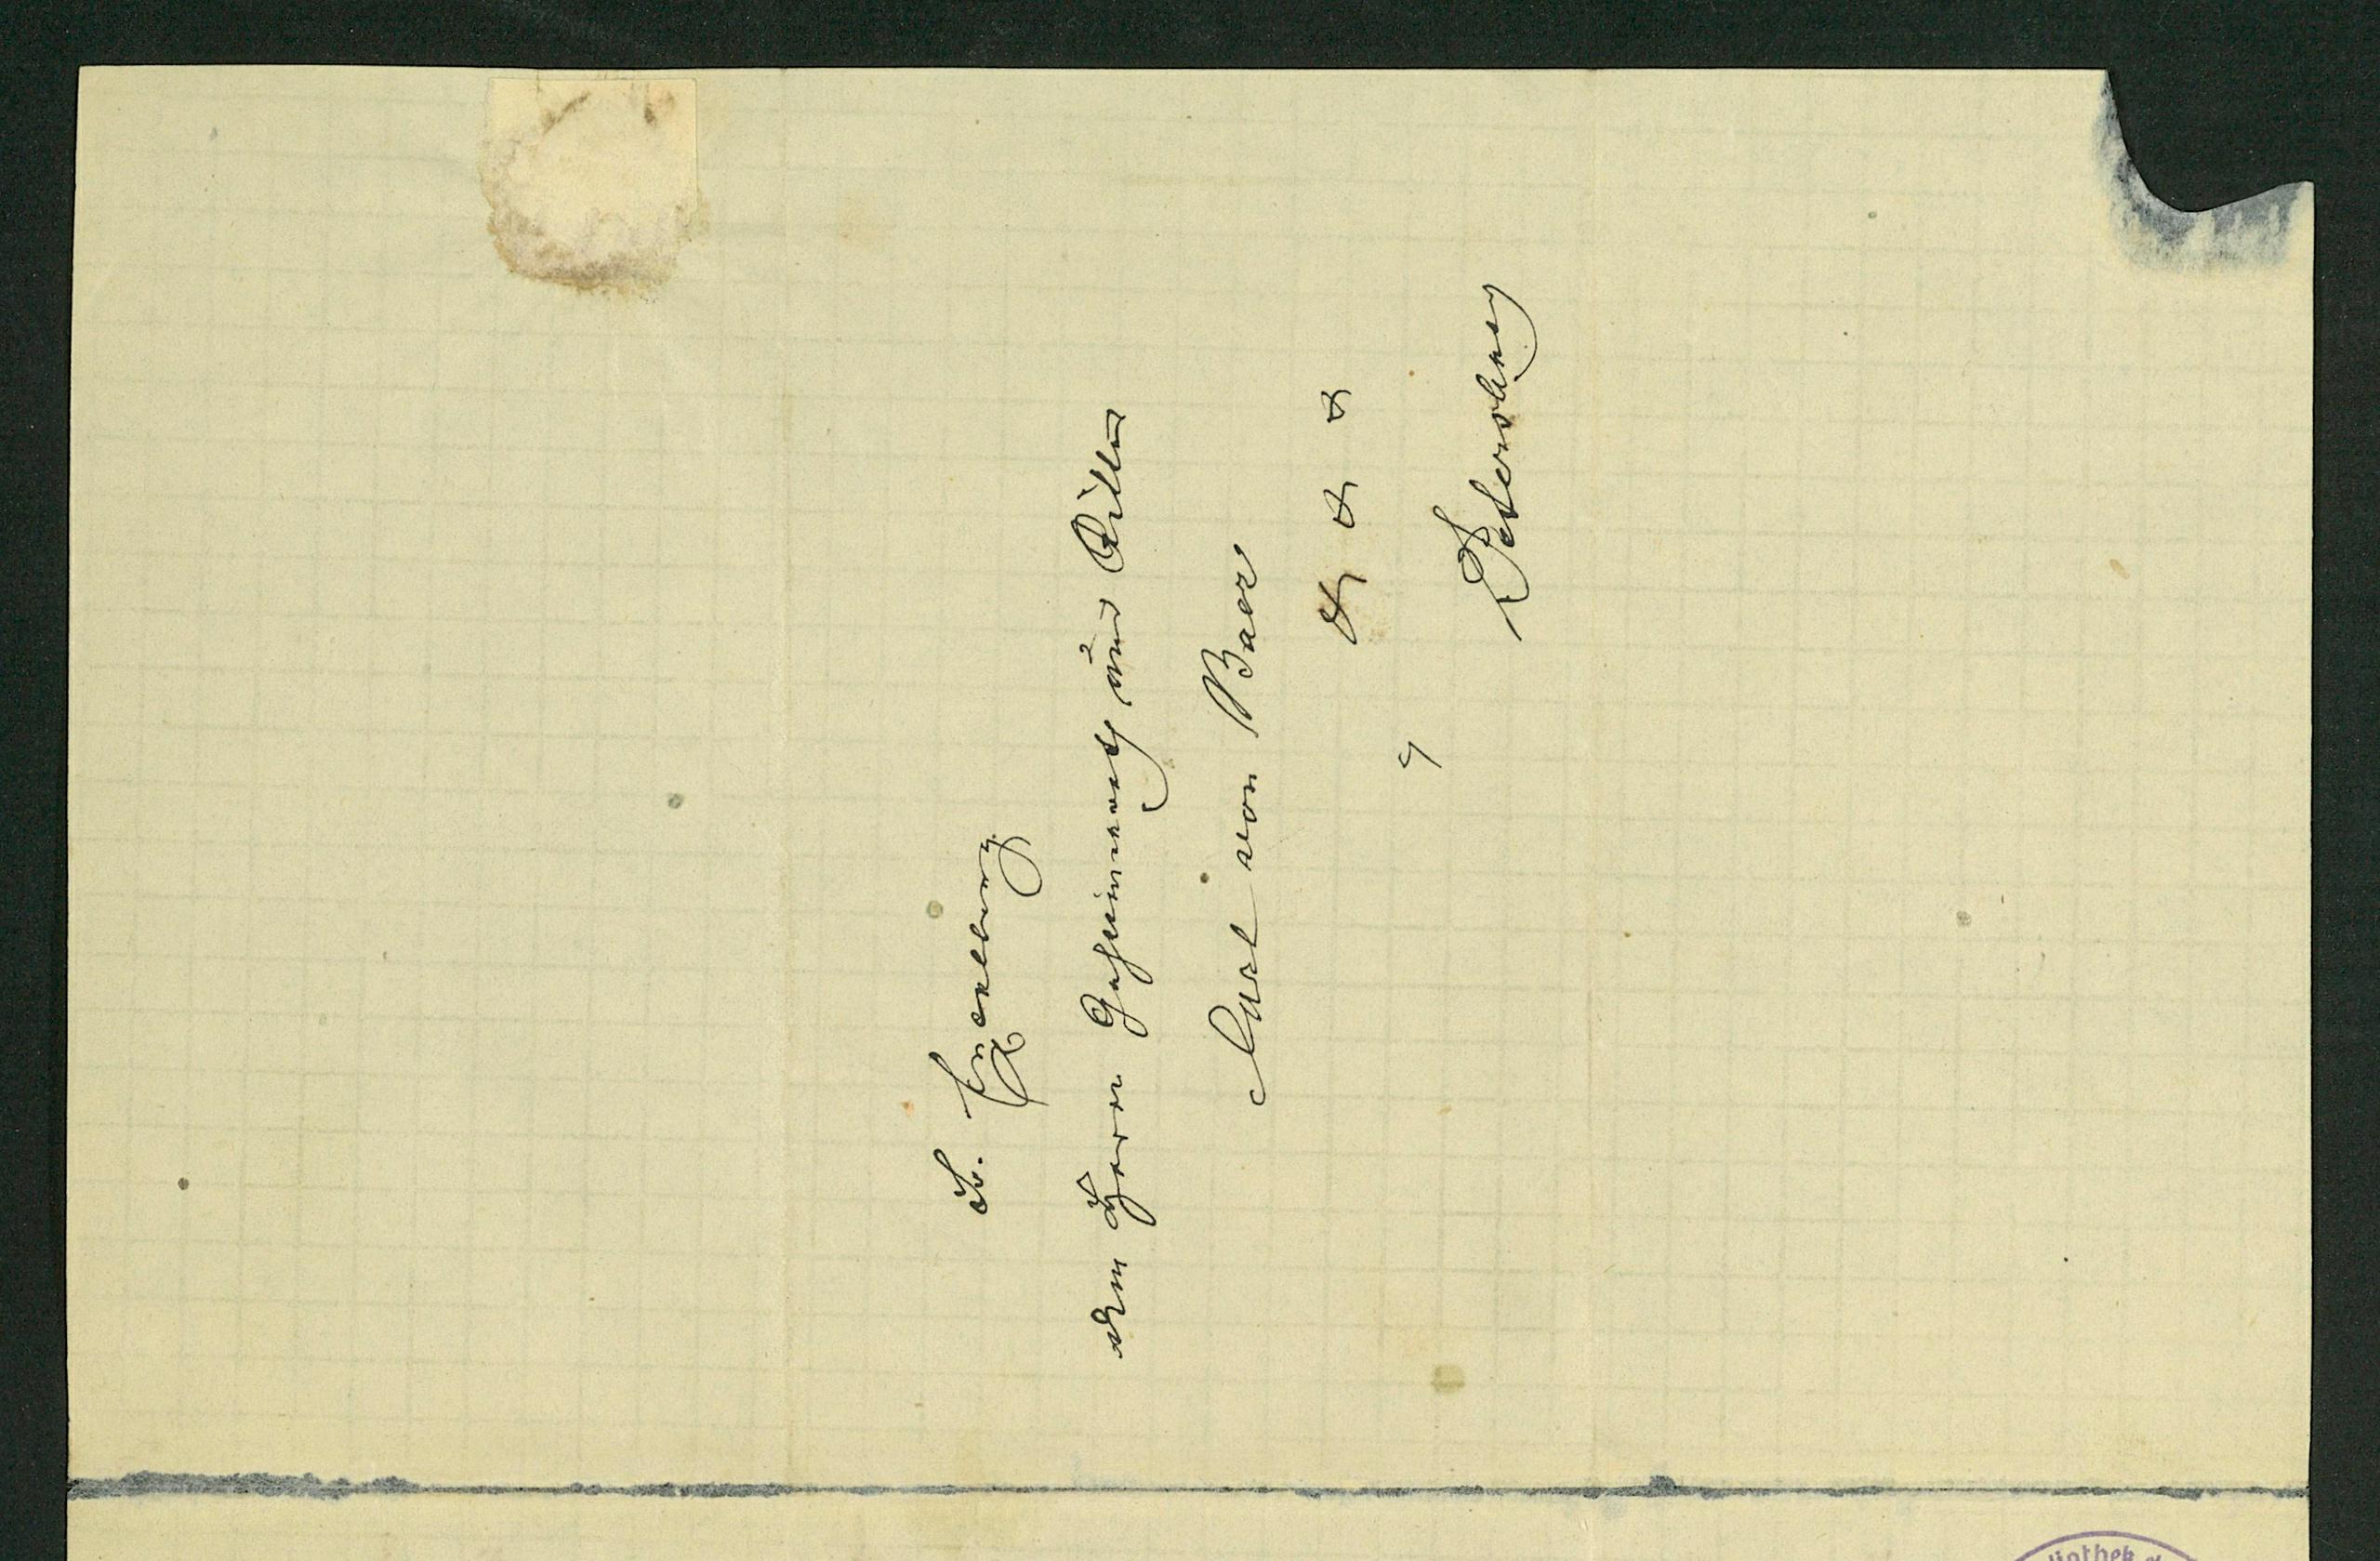 Sr. Excellenz
dem Herrn Geheimerath und Ritter
Carl von Baer
in
Petersburg